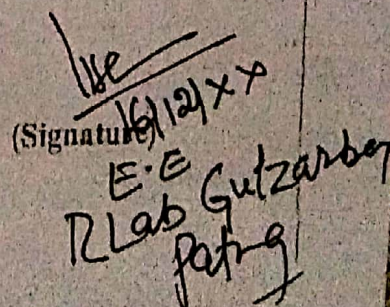 16/12/XX
(Signature)
E.E
R Lab Gulzarbag
Patna